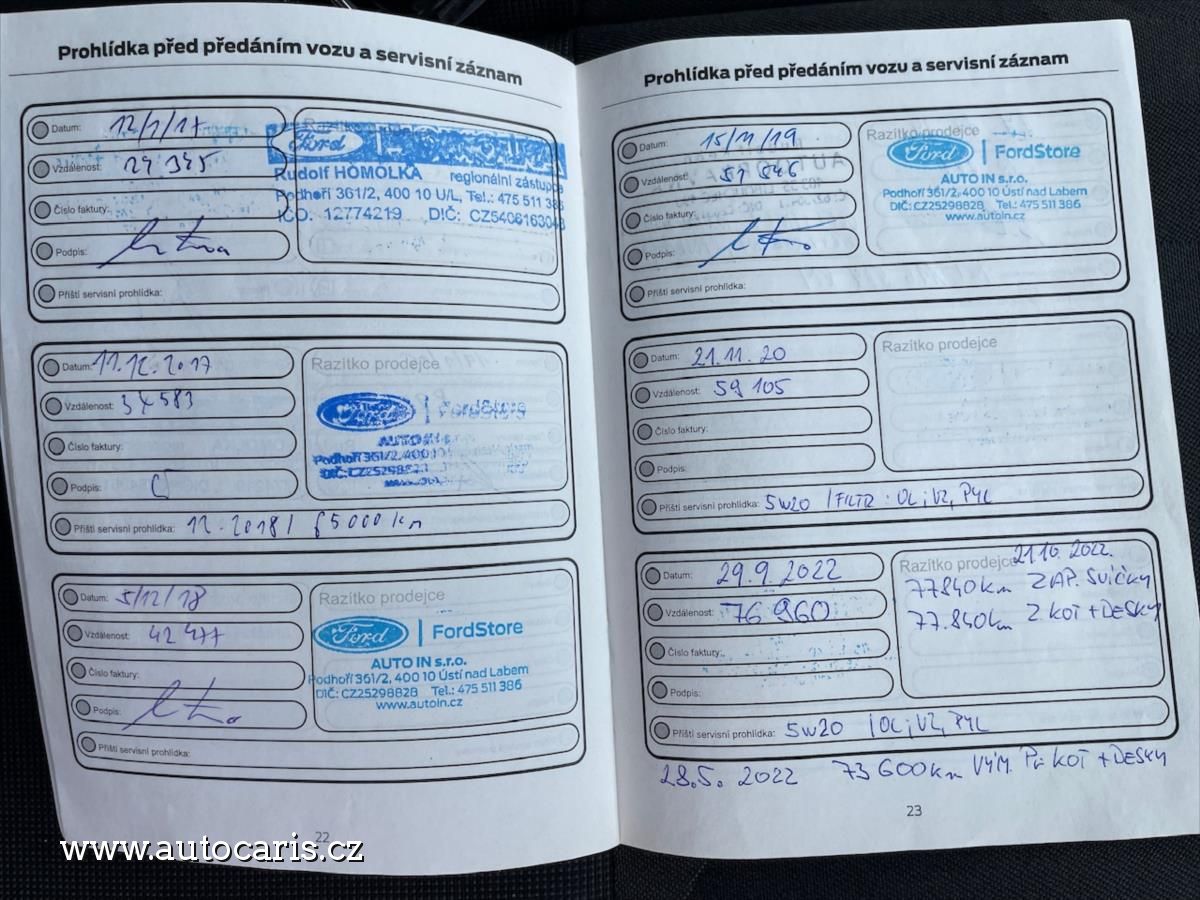 Prohlídka před předáním vozu a servisní záznam
Datum: 12/1/17
Vzdálenost: 24 345
Číslo faktury:
Podpis:
Příští servisní prohlídka:
Razítko prodejce
Ford
Rudolf HOMOLKA regionální zástupce
Podhoří 361/2, 400 10 U/L, Tel.: 475 511 386
IČO: 12774219 DIČ: CZ5406163048
Datum: 11.12.2017
Vzdálenost: 34583
Číslo faktury:
Podpis:
Příští servisní prohlídka: 12.2018/ 65000 km
Razítko prodejce
Ford | FordStore
AUTO IN s.r.o.
Podhoří 361/2, 400 10
DIČ: CZ25298828
Datum: 5/12/18
Vzdálenost: 42 477
Číslo faktury:
Podpis:
Příští servisní prohlídka:
Razítko prodejce
Ford | FordStore
AUTO IN s.r.o.
Podhoří 361/2, 400 10 Ústí nad Labem
DIČ: CZ25298828 Tel.: 475 511 386
www.autoin.cz
22
Prohlídka před předáním vozu a servisní záznam
Datum: 15/11/19
Vzdálenost: 51 846
Číslo faktury:
Podpis:
Příští servisní prohlídka:
Razítko prodejce
Ford | FordStore
AUTO IN s.r.o.
Podhoří 361/2, 400 10 Ústí nad Labem
DIČ: CZ25298828 Tel.: 475 511 386
www.autoin.cz
Datum: 21.11.20
Vzdálenost: 59 105
Číslo faktury:
Podpis:
Příští servisní prohlídka: 5W20 /FILTR. OL, VZ, PYL
Razítko prodejce
Datum: 29.9.2022
Vzdálenost: 76 960
Číslo faktury:
Podpis:
Příští servisní prohlídka: 5W20 /OL, VZ, PYL
Razítko prodejce 21.10.2022.
77840km ZAP. SVÍČKY
77.840km Z KOT + DESKY
28.5. 2022 73 600km VÝM. Př KOT + DESKY
23
www.autocaris.cz